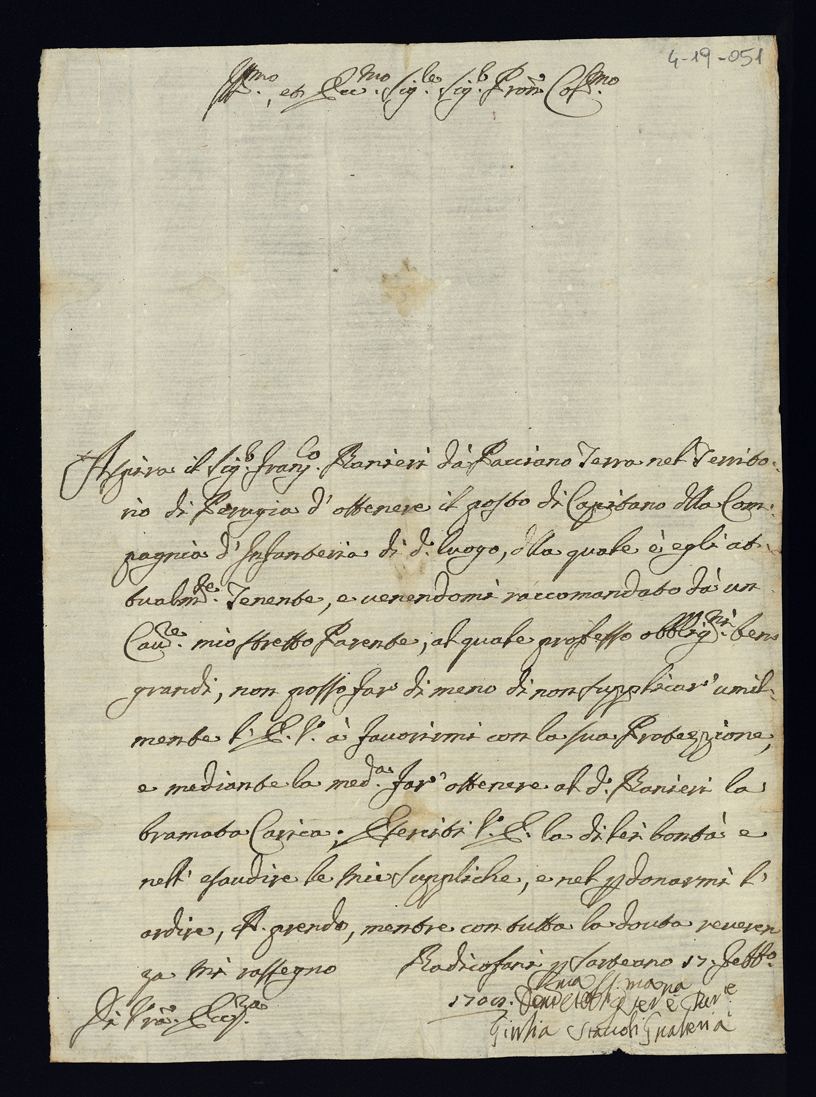 4-19-051
Ill.mo, et Ecc.mo Sig.re Sig.r Pron Col.mo
Aspira il Sig.r Fran.co Ranieri da Pacciano Terra nel Territo-
rio di Perugia d'ottenere il posto di Capitano dlla Com-
pagnia d'Infanteria di d.o luogo, dlla quale è egli at-
tualm.te Tenente, e venendomi raccomandato da un
Cav.re mio stretto Parente, al quale professo obblig.ni ben
grandi, non posso far di meno di non supplicar' umil-
mente l'E.V. à favorirmi con la sua Protezzione,
e mediante la med.a far' ottenere al d.o Ranieri la
bramata Carica; Eserciti V.E. la di lei bontà e
nell'esaudire le mie suppliche, e nel pdonarmi l'
ardire, prendo, mentre con tutta la dovuta reveren
za mi rassegno Radicofani p Sarteano 17: Febb.o
Di Vra. Ecc.za
Giulia